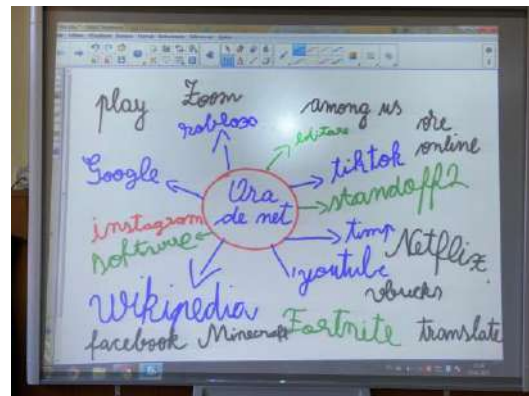 play
Zoom
roblox
among us
editare
ore
online
Google
tiktok
Ora
de net
standoff2
instagram
software
timp
Netflix
youtube
vbucks
Wikipedia
facebook
Minecraft
Fortnite
translate